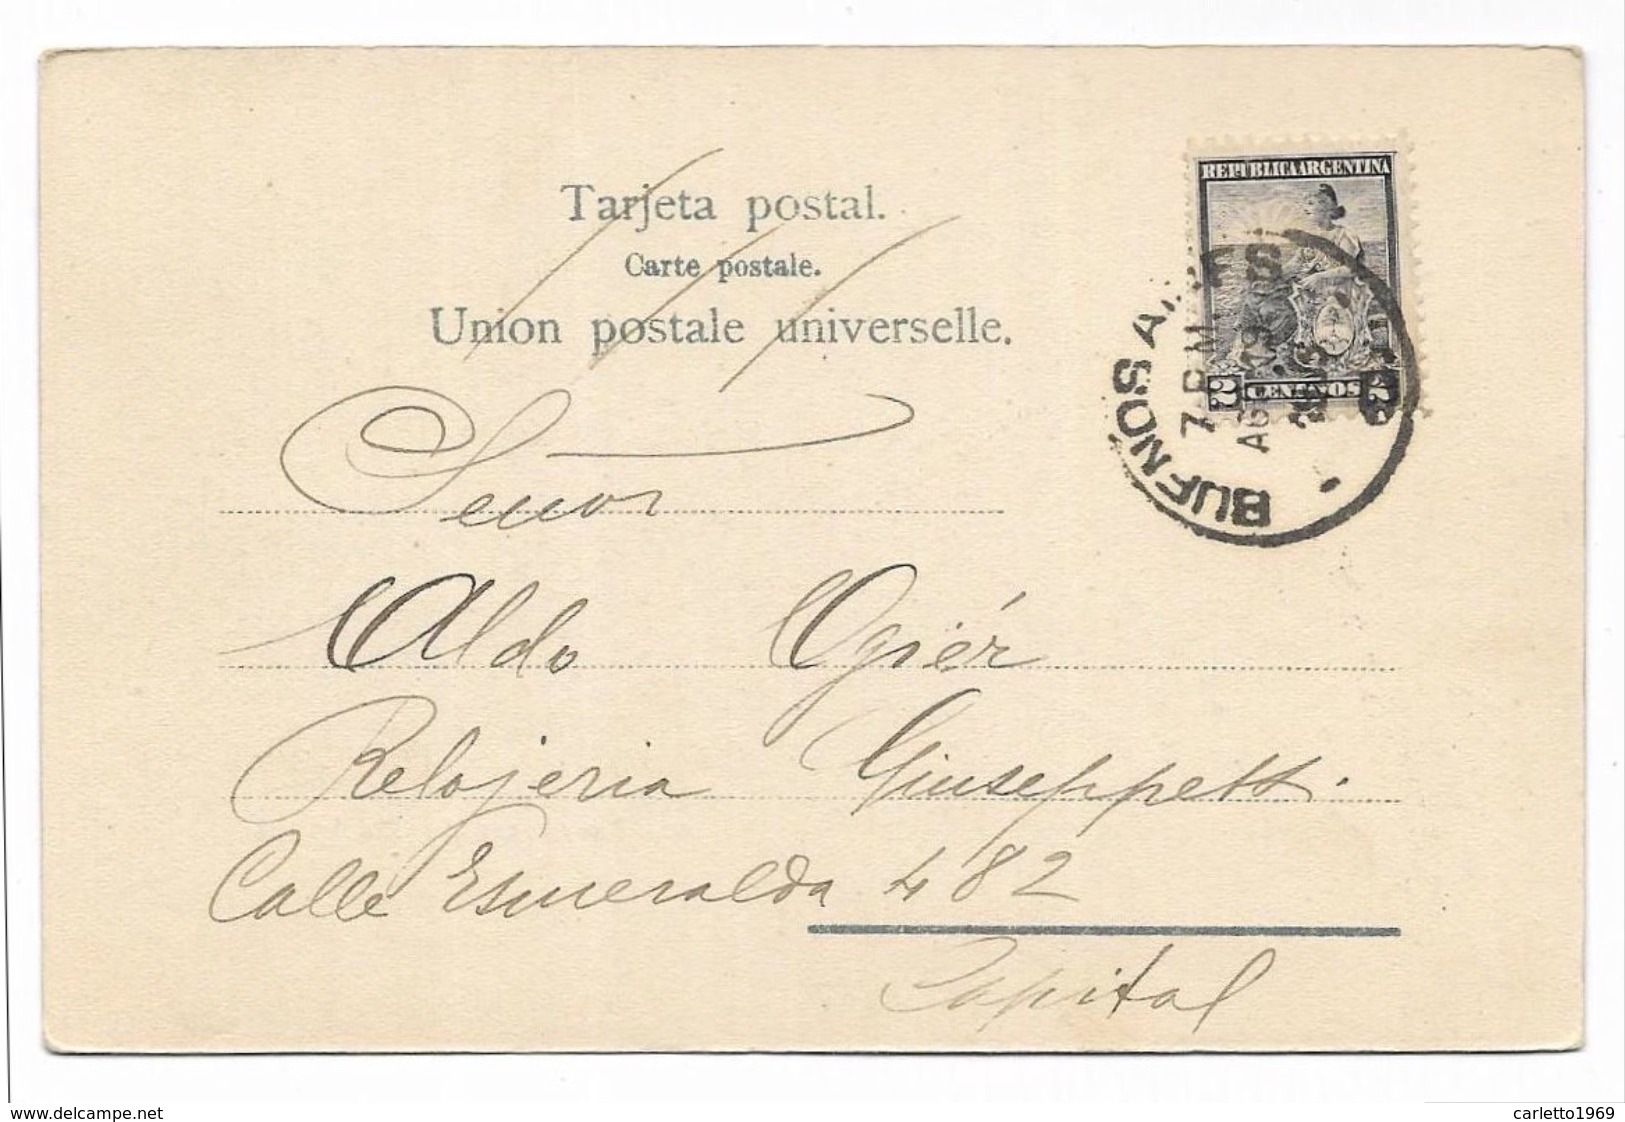 Tarjeta postal.
Carte postale.
Union postale universelle.
REPUBLICA ARGENTINA
2 CENTAVOS 2
BUENOS AIRES
7 P.M
AG
Señor
Aldo Ogiér
Relojeria Giuseppetti
Calle Esmeralda 482
Capital
www.delcampe.net
carletto1969